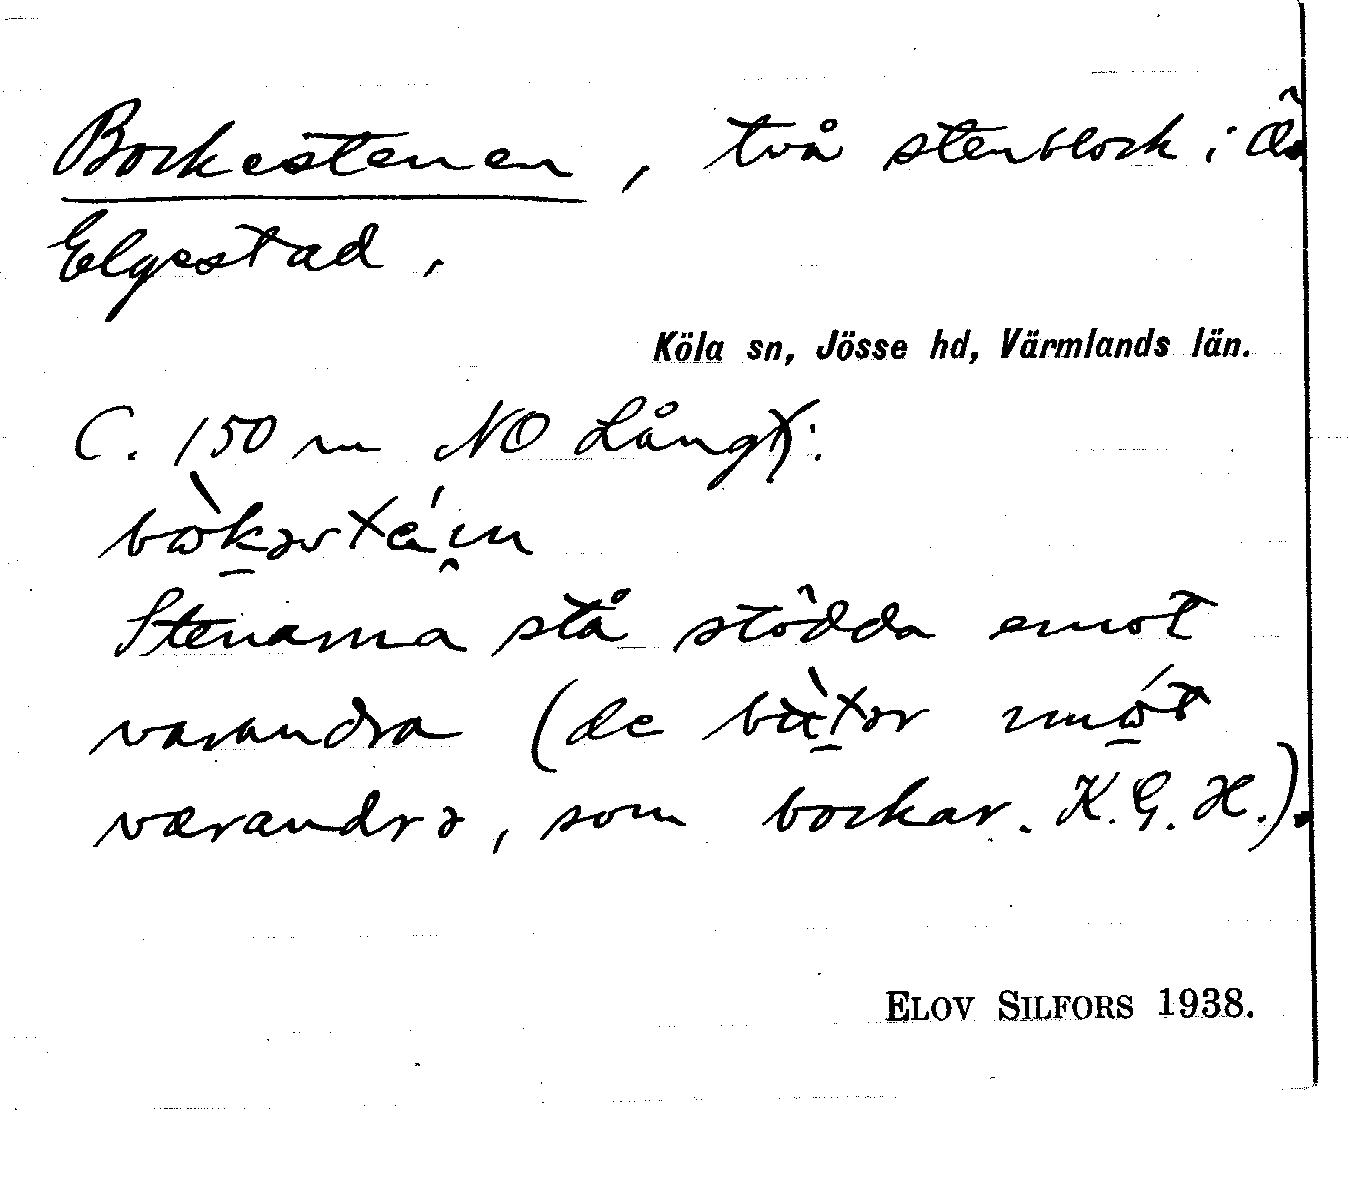 Bockestenen, två stenblock i Ö.
Elgestad.
Köla sn, Jösse hd, Värmlands län.
C. 150 m NO Långtj:
Stenarna stå stödda emot
varandra (de
værandrə, som bockar. K.G.H.).
ELOV SILFORS 1938.